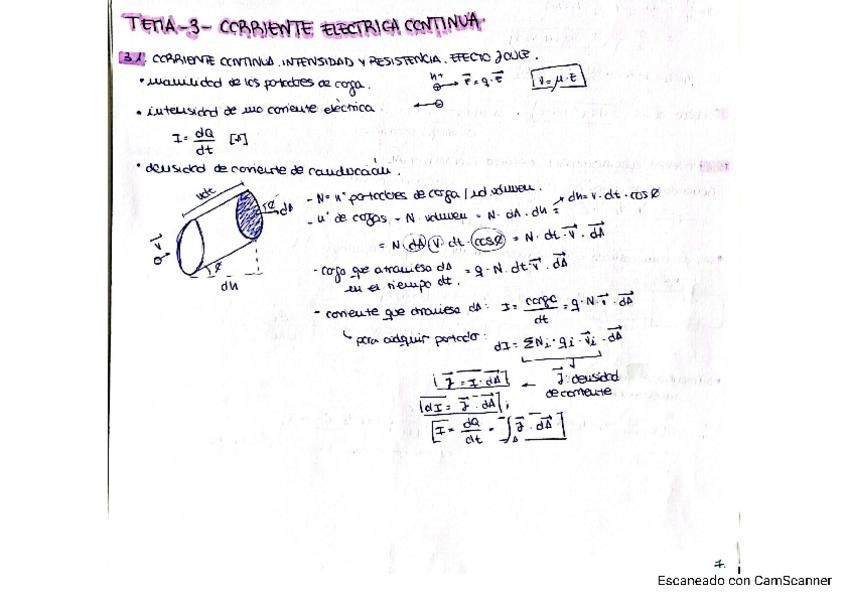 TEMA-3- CORRIENTE ELECTRICA CONTINUA
3.1. CORRIENTE CONTINUA. INTENSIDAD Y RESISTENCIA. EFECTO JOULE.
• movilidad de los portadores de carga. F⃗ = q·E⃗ v = μ·E
• intensidad de una corriente eléctrica
I = dQ/dt [A]
• densidad de corriente de conducción.
vdt
- N = nº portadores de carga / ud. volumen.
- nº de cargas = N volumen = N· dA· dh = dh = v· dt· cosφ
= N dA v dt· cosφ = N· dt· v⃗· dA⃗
- carga que atraviesa dA = q· N· dt v⃗· dA⃗
en el tiempo dt.
- corriente que atraviesa dA: I = carga/dt = q· N· v⃗· dA⃗
para portador: dI = ΣNi· qi· v⃗i· dA⃗
J⃗ = I· dA⃗ ← J⃗: densidad
de corriente
dI = J⃗· dA⃗;
I = dQ/dt = ∫A J⃗· dA⃗
φ dA
v⃗
φ
dh
7.
Escaneado con CamScanner